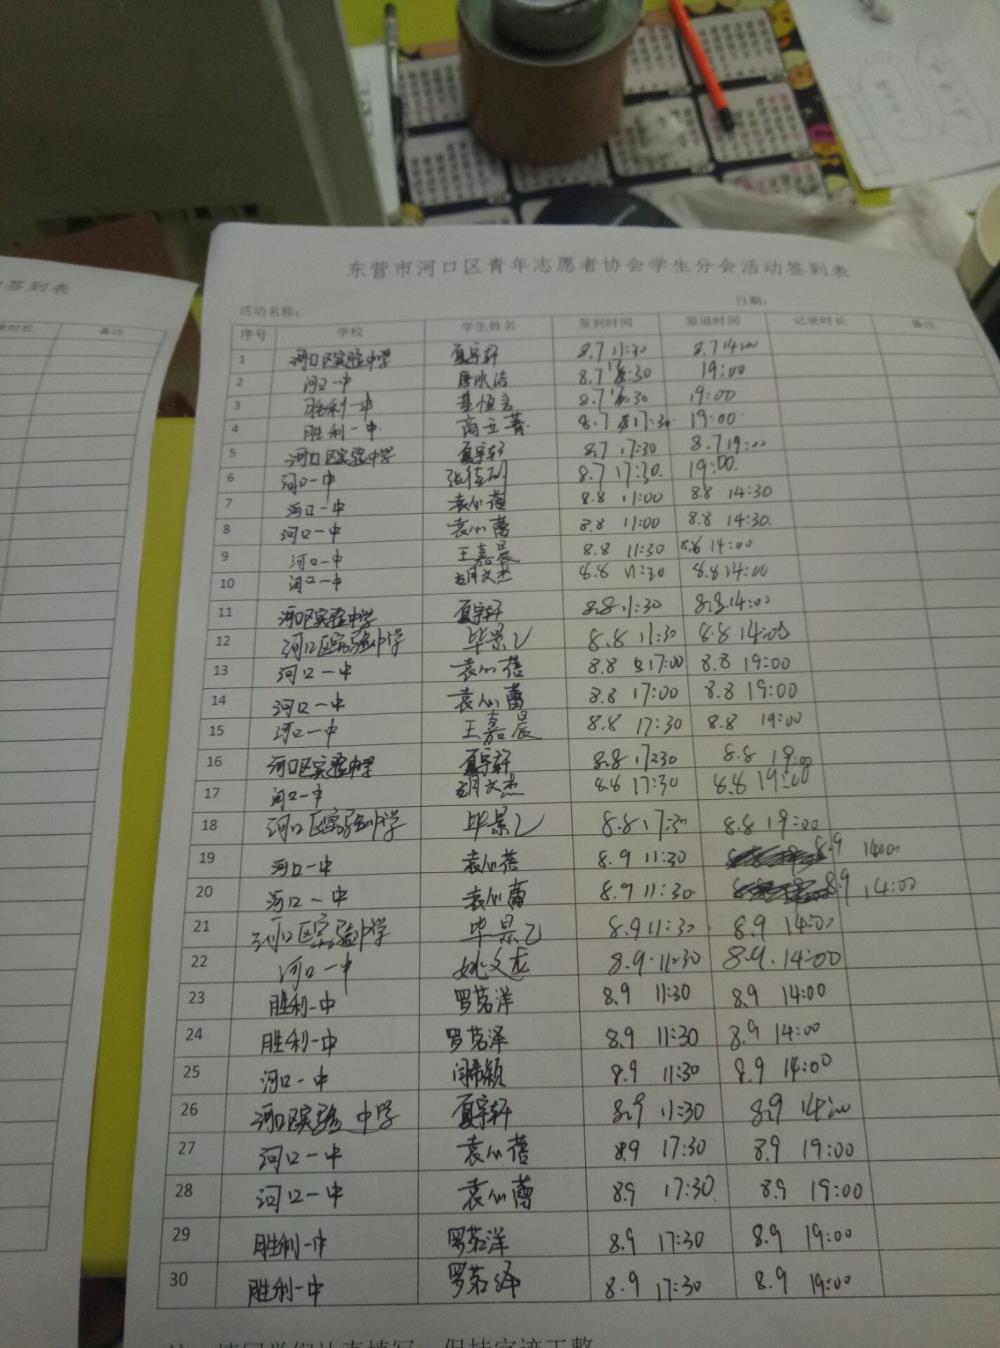 签到表
东营市河口区青年志愿者协会学生分会活动签到表
活动名称: 日期:
录时长 备注
序号 学校 学生姓名 签到时间 签退时间 记录时长 备注
1 河口区实验中学 夏宇轩 8.7 11:30 8.7 14:00
2 河口一中 8.7 :30 19:00
3 胜利一中 8.7 :30 19:00
4 胜利一中 8.7 17:30 19:00
5 河口区实验中学 夏宇轩 8.7 17:30 8.7 19:00
6 河口一中 8.7 17:30. 19:00.
7 河口一中 袁心蓓 8.8 11:00 8.8 14:30
8 河口一中 袁心蕾 8.8 11:00 8.8 14:30.
9 河口一中 王嘉晨 8.8 11:30 14:00
10 河口一中 胡文杰 8.8 11:30 8.8 14:00
11 河口区实验中学 夏宇轩 8.8 11:30 8.8 14:00
12 河口区实验中学 毕景 8.8 11:30 8.8 14:00
13 河口一中 袁心蓓 8.8 17:00 8.8 19:00
14 河口一中 袁心蕾 8.8 17:00 8.8 19:00
15 河口一中 王嘉晨 8.8 17:30 8.8 19:00
16 河口区实验中学 夏宇轩 8.8 17:30 8.8 19:00
17 河口一中 胡文杰 8.8 17:30 8.8 19:00
18 河口区实验中学 毕景 8.8 17:30 8.8 19:00
19 河口一中 袁心蓓 8.9 11:30 8.9 14:00
20 河口一中 袁心蕾 8.9 11:30 8.9 14:00
21 河口区实验中学 毕景 8.9 11:30 8.9 14:00
22 河口一中 姚文龙 8.9 11:30 8.9. 14:00
23 胜利一中 罗茗洋 8.9 11:30 8.9 14:00
24 胜利一中 罗茗泽 8.9 11:30 8.9 14:00
25 河口一中 闫希颖 8.9 11:30 8.9 14:00
26 河口区实验中学 夏宇轩 8.9 11:30 8.9 14:00
27 河口一中 袁心蓓 8.9 17:30 8.9 19:00
28 河口一中 袁心蕾 8.9 17:30 8.9 19:00
29 胜利一中 罗茗洋 8.9 17:30 8.9 19:00
30 胜利一中 罗茗泽 8.9 17:30 8.9 19:00